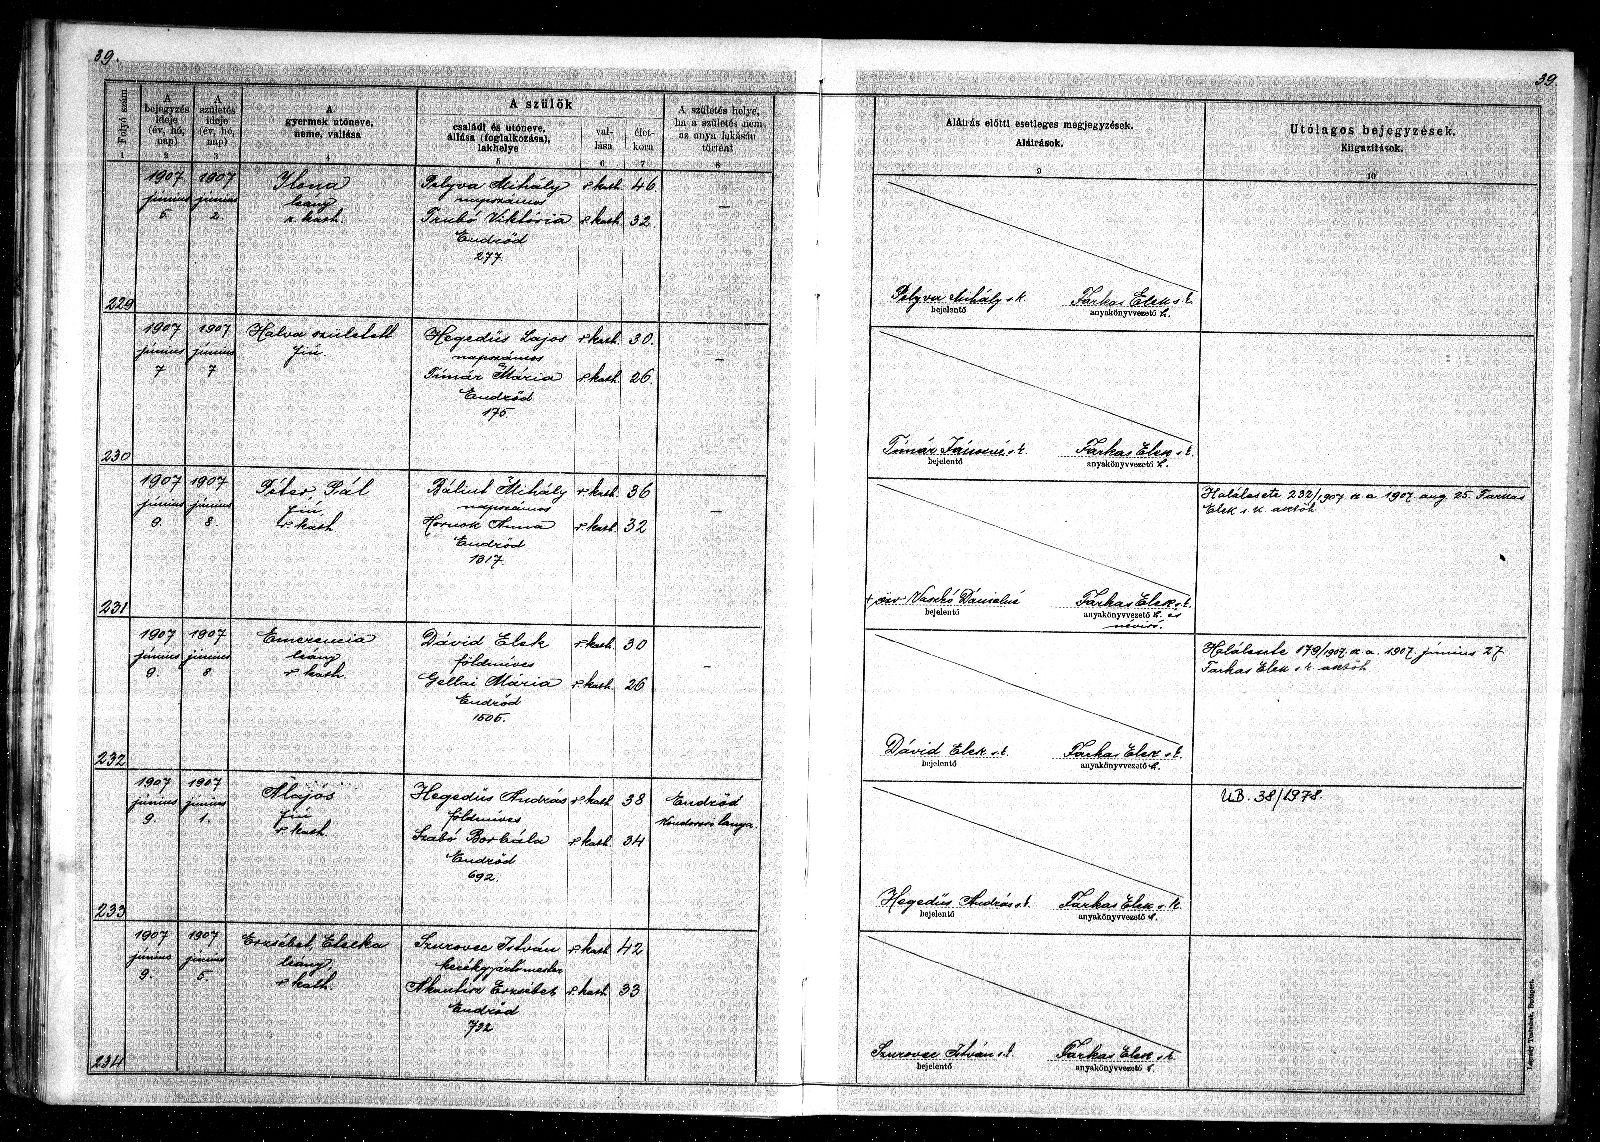 39.
39.
Folyó szám
A bejegyzés ideje (év, hó, nap)
A születés ideje (év, hó, nap)
A gyermek utóneve, neme, vallása
A szülők
családi és utóneve, állása (foglalkozása), lakhelye
vallása
életkora
A születés helye, ha a születés nem az anya lakásán történt
Aláírás előtti esetleges megjegyzések.
Aláírások.
Utólagos bejegyzések.
Kiigazítások.
1 2 3 4 5 6 7 8 9 10
229
1907 június 5.
1907 június 2.
Ilona
leány
r. kath.
Polyva Mihály r. kath. 46
napszámos
Trubó Viktória r. kath. 32
Endrőd
277.
—
Polyva Mihály s. k.
bejelentő
Farkas Elek s. k.
anyakönyvvezető h.
230
1907 június 7
1907 június 7
Halva született
fiú.
Hegedüs Lajos r. kath. 30.
napszámos
Tímár Mária r. kath. 26.
Endrőd
175.
—
Tímár Jánosné s. k.
bejelentő
Farkas Elek s. k.
anyakönyvvezető h.
231
1907 június 9.
1907 június 8.
Péter, Pál
fiú
r. kath
Bálint Mihály r. kath. 36
napszámos
Hornok Anna r. kath. 32
Endrőd
1317.
—
+ özv Vaszkó Dánielné
bejelentő
Farkas Elek s. k.
anyakönyvvezető h. és
névíró.
Halálesete 232/1907. a. a 1907. aug 25. Farkas
Elek s. k. aktóh
232
1907 június 9.
1907 június 8.
Emerencia
leány
r. kath.
Dávid Elek r. kath. 30
földmíves
Gellai Mária r. kath. 26
Endrőd
1505.
—
Dávid Elek s. k.
bejelentő
Farkas Elek s. k.
anyakönyvvezető h.
Halálesete 179/1907. a. a. 1907. június 27
Farkas Elek s. k. aktóh
233
1907 június 9.
1907 június 1.
Alajos
fiú
r. kath.
Hegedüs András r. kath. 38
földmíves
Szabó Borbála r. kath. 34
Endrőd
692.
Endrőd
Kondorosi tanya.
Hegedüs András s. k.
bejelentő
Farkas Elek s. k.
anyakönyvvezető h.
UB. 38/1978.
234
1907 június 9.
1907 június 5.
Erzsébet, Etelka
leány,
r. kath.
Szurovec István r. kath. 42
kerékgyártómester
Erzsébet r. kath. 33
Endrőd
732
Szurovec István s. k.
bejelentő
Farkas Elek s. k.
anyakönyvvezető h.